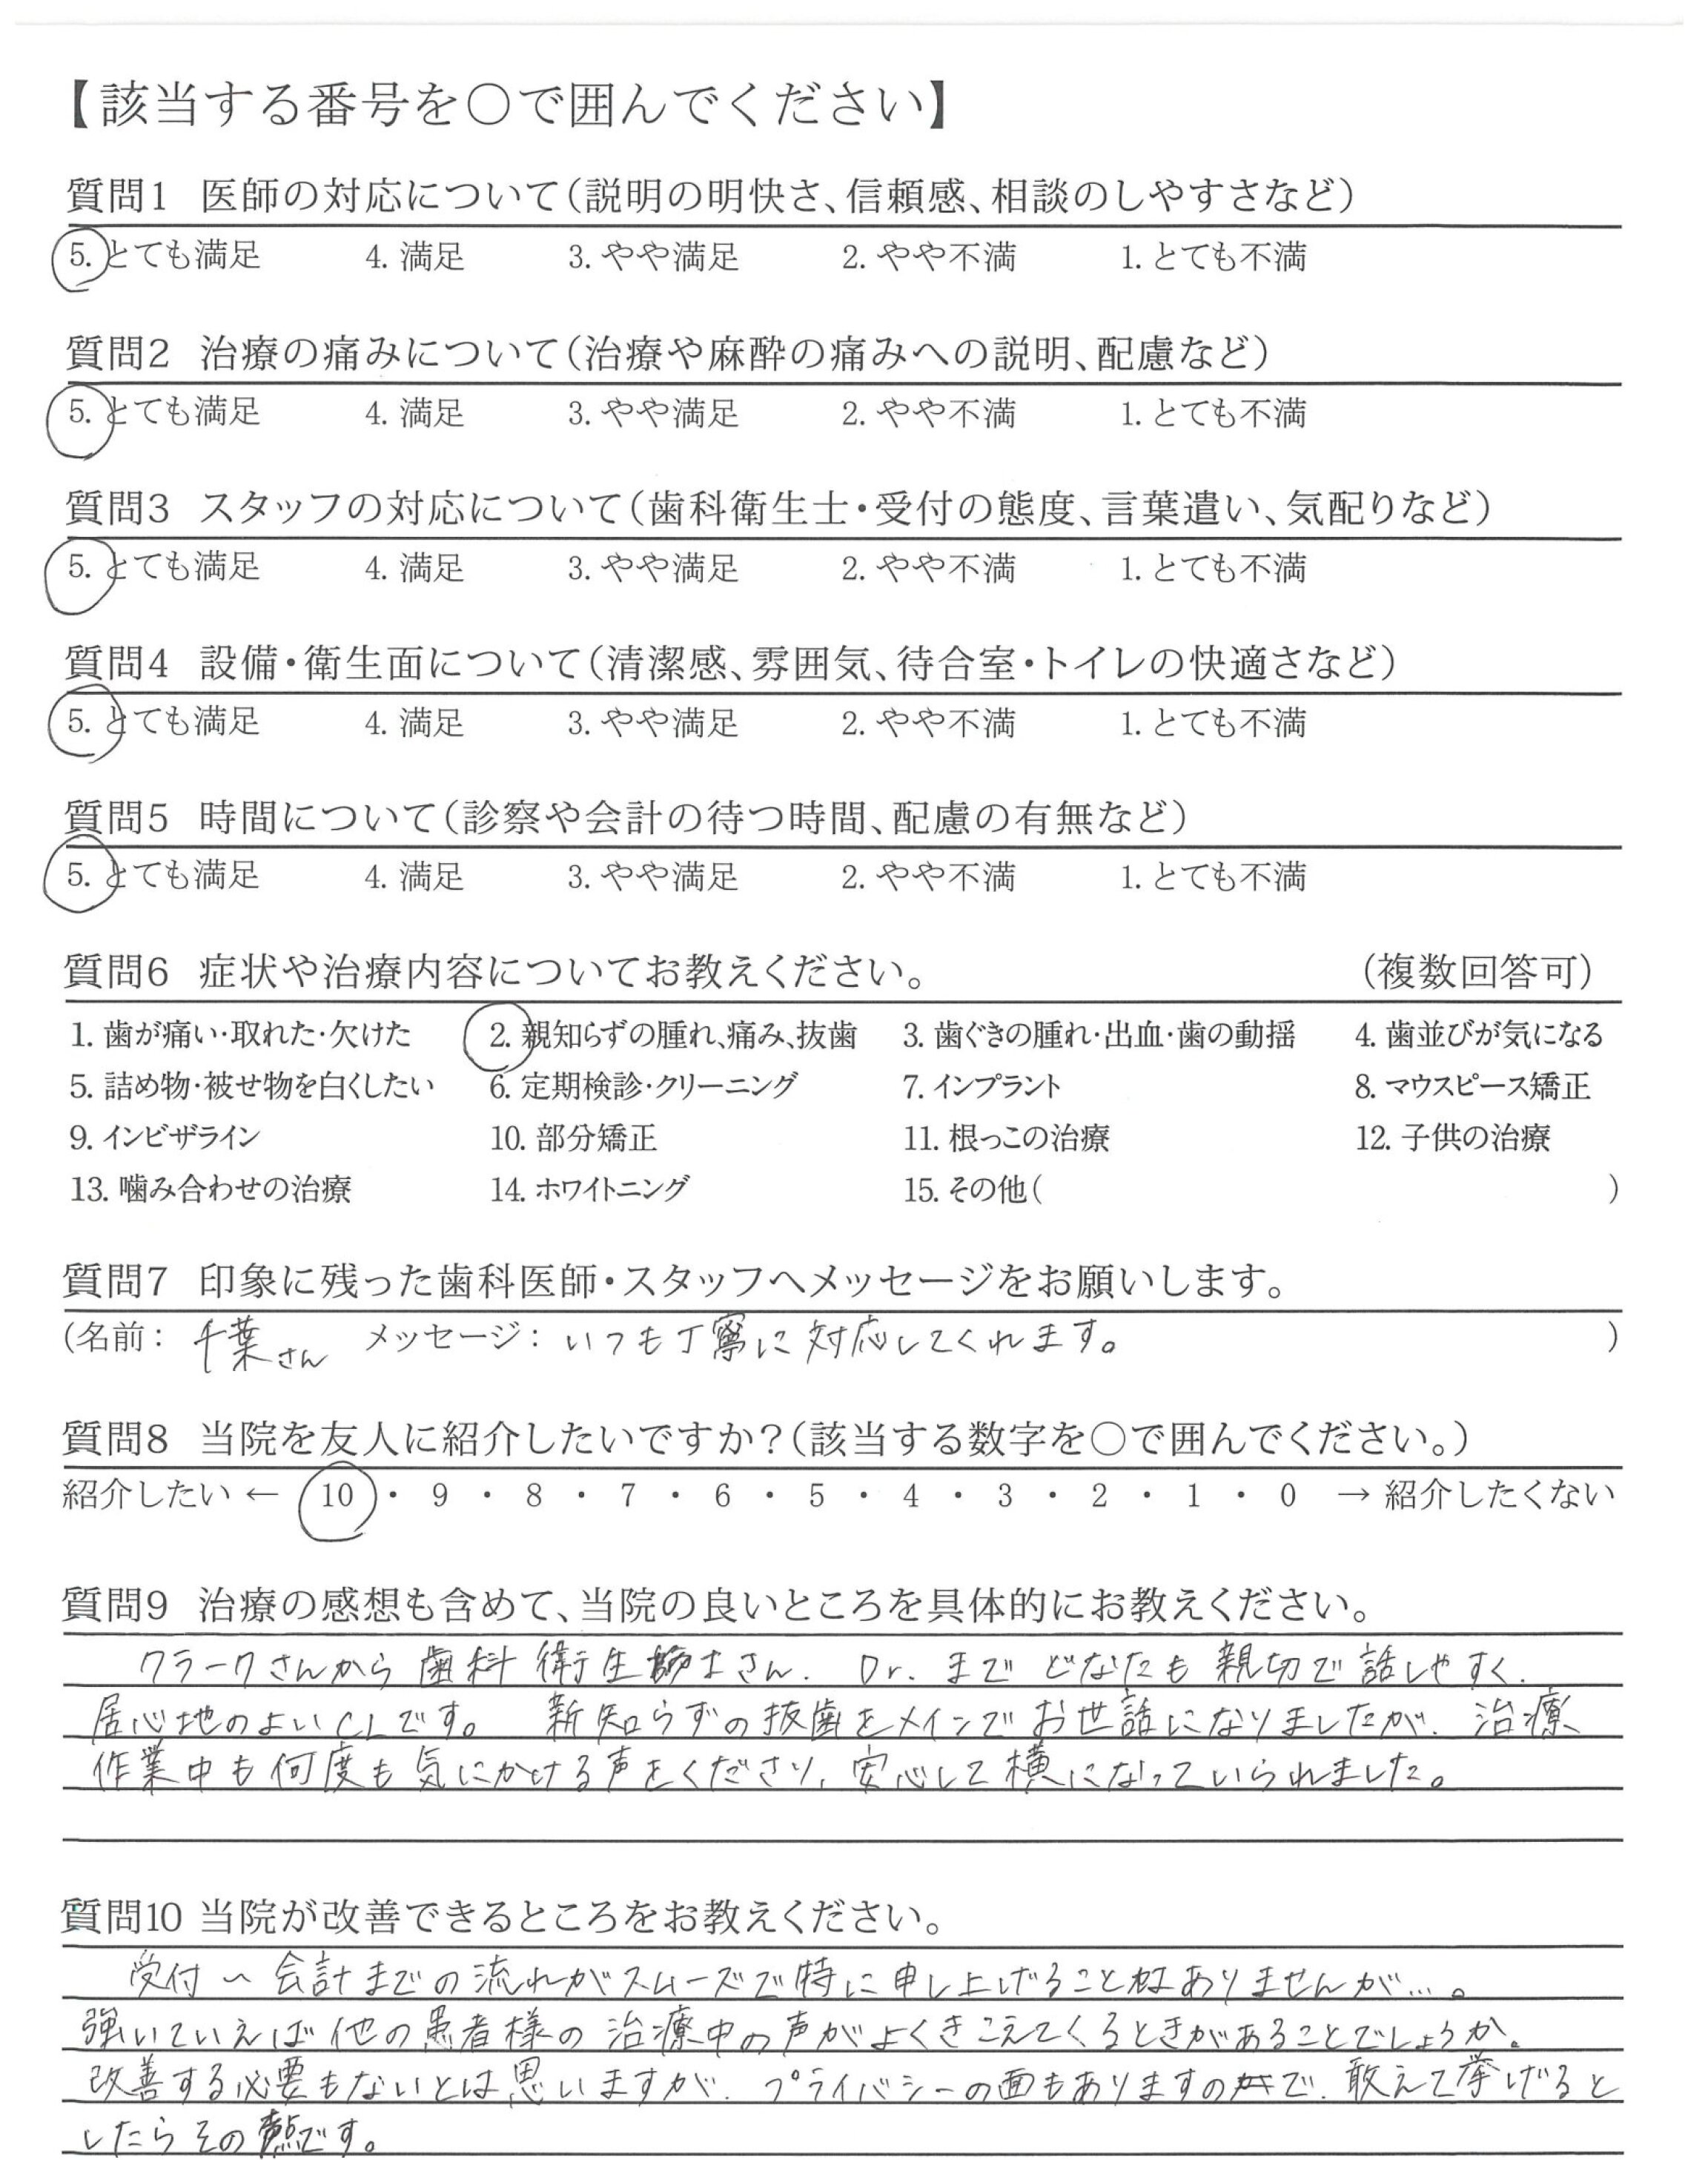 【該当する番号を〇で囲んでください】
質問1 医師の対応について（説明の明快さ、信頼感、相談のしやすさなど）
5. とても満足 4. 満足 3. やや満足 2. やや不満 1. とても不満
質問2 治療の痛みについて（治療や麻酔の痛みへの説明、配慮など）
5. とても満足 4. 満足 3. やや満足 2. やや不満 1. とても不満
質問3 スタッフの対応について（歯科衛生士・受付の態度、言葉遣い、気配りなど）
5. とても満足 4. 満足 3. やや満足 2. やや不満 1. とても不満
質問4 設備・衛生面について（清潔感、雰囲気、待合室・トイレの快適さなど）
5. とても満足 4. 満足 3. やや満足 2. やや不満 1. とても不満
質問5 時間について（診察や会計の待つ時間、配慮の有無など）
5. とても満足 4. 満足 3. やや満足 2. やや不満 1. とても不満
質問6 症状や治療内容についてお教えください。 （複数回答可）
1. 歯が痛い・取れた・欠けた 2. 親知らずの腫れ、痛み、抜歯 3. 歯ぐきの腫れ・出血・歯の動揺 4. 歯並びが気になる
5. 詰め物・被せ物を白くしたい 6. 定期検診・クリーニング 7. インプラント 8. マウスピース矯正
9. インビザライン 10. 部分矯正 11. 根っこの治療 12. 子供の治療
13. 噛み合わせの治療 14. ホワイトニング 15. その他（ ）
質問7 印象に残った歯科医師・スタッフへメッセージをお願いします。
（名前： 千葉さん メッセージ： いつも丁寧に対応してくれます。 ）
質問8 当院を友人に紹介したいですか？（該当する数字を〇で囲んでください。）
紹介したい ← 10 ・ 9 ・ 8 ・ 7 ・ 6 ・ 5 ・ 4 ・ 3 ・ 2 ・ 1 ・ 0 → 紹介したくない
質問9 治療の感想も含めて、当院の良いところを具体的にお教えください。
クラークさんから歯科衛生士さん、Dr.までどなたも親切で話しやすく、
居心地のよいCLです。 新知らずの抜歯をメインでお世話になりましたが、治療
作業中も何度も気にかける声をくださり、安心して横になっていられました。
質問10 当院が改善できるところをお教えください。
受付〜会計までの流れがスムーズで特に申し上げることはありませんが…。
強いていえば他の患者様の治療中の声がよくきこえてくるときがあることでしょうか。
改善する必要もないとは思いますが、プライバシーの面もありますので、敢えて挙げると
したらその点です。